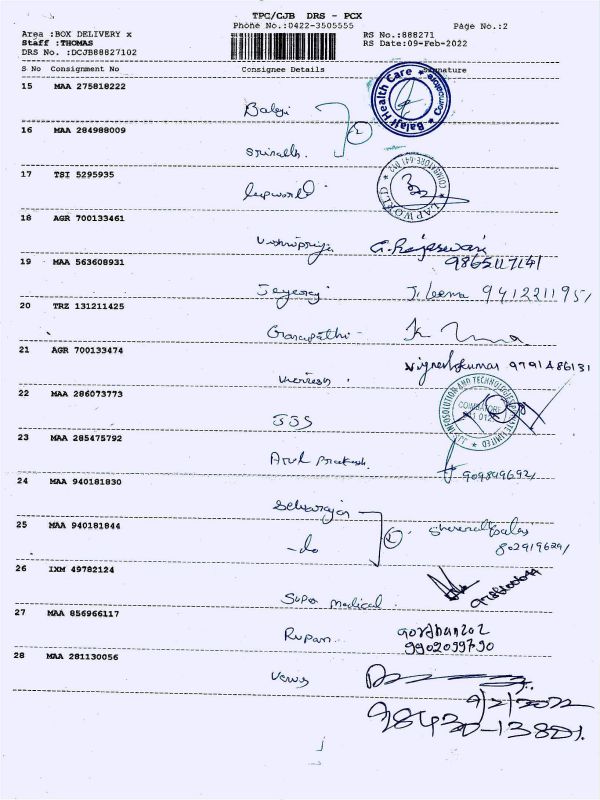 TPC/CJB DRS - PCX
Phone No.:0422-3505555 Page No.:2
Area :BOX DELIVERY x RS No.:888271
Staff :THOMAS RS Date:09-Feb-2022
DRS No. :DCJB88827102
S No Consignment No Consignee Details Signature
15 MAA 275818222
Balaji Health Care
Coimbatore
Balaji
16 MAA 284988009
2
17 TSI 5295935
COIMBATORE-641 012
LAPWORLD
Lapworld
18 AGR 700133461
Vishnupriya G. Rajeswari
19 MAA 563608931
Jeyaraj J. Leema 9412211951
20 TRZ 131211425
Ganapathi
21 AGR 700133474
Vigneshkumar 9791486131
22 MAA 286073773
COIMBATORE
JJS
23 MAA 285475792
Arul Prakash
24 MAA 940181830
Selvarajan
25 MAA 940181844
-do
26 IXM 49782124
Super Medical
27 MAA 856966117
Rupam gordhanzoz
9902099790
28 MAA 281130056
Venus
9/2/2022
98430-13801.